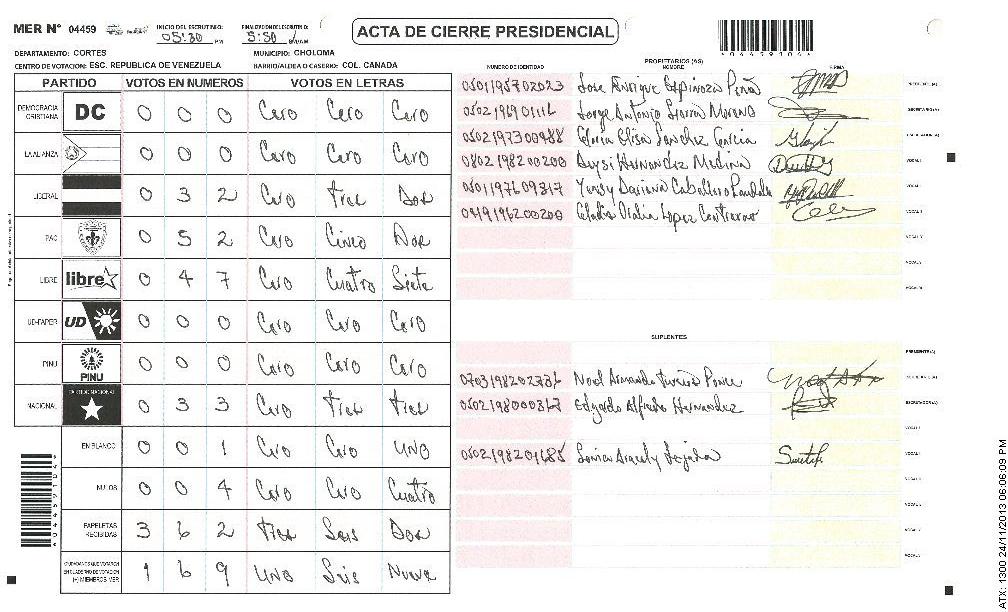 MER N° 04459
INICIO DEL ESCRUTINIO: 05:30 PM
FINALIZACION ESCRUTINIO: 5:50 PM/AM
ACTA DE CIERRE PRESIDENCIAL
DEPARTAMENTO: CORTES
MUNICIPIO: CHOLOMA
CENTRO DE VOTACION: ESC. REPUBLICA DE VENEZUELA
BARRIO/ALDEA O CASERIO: COL. CANADA
PARTIDO VOTOS EN NUMEROS VOTOS EN LETRAS
DEMOCRACIA CRISTIANA DC 0 0 0 Cero Cero Cero
LA ALIANZA 0 0 0 Cero Cero Cero
LIBERAL 0 3 2 Cero Tres Dos
PAC 0 5 2 Cero Cinco Dos
LIBRE libre 0 4 7 Cero Cuatro Siete
UD-FAPER UD 0 0 0 Cero Cero Cero
PINU PINU 0 0 0 Cero Cero Cero
NACIONAL 0 3 3 Cero Tres Tres
EN BLANCO 0 0 1 Cero Cero UNO
NULOS 0 0 4 Cero Cero Cuatro
PAPELETAS RECIBIDAS 3 6 2 Tres Seis Dos
CIUDADANOS QUE VOTARON EN CUADERNO DE VOTACION (+) MIEMBROS MER 1 6 9 UNO Seis Nueve
PROPIETARIOS (AS)
NUMERO DE IDENTIDAD NOMBRE FIRMA
0501195702023 Jose Enrique Espinoza Peña
Jorge Antonio Moreno
0502197300488 Gloria Elisa Sanchez Garcia
0802198200200 Deysi Hernandez Medina
0501197609317 Caballero
0419196200200 Gladis Lopez Contreras
SUPLENTES
PRESIDENTE(A)
Noel Armando Ponce
0502198000367 Edgardo Alfredo Hernandez
0502198201685 Sonia Aracely Tejada
ATX: 1300 24/11/2013 06:06:09 PM